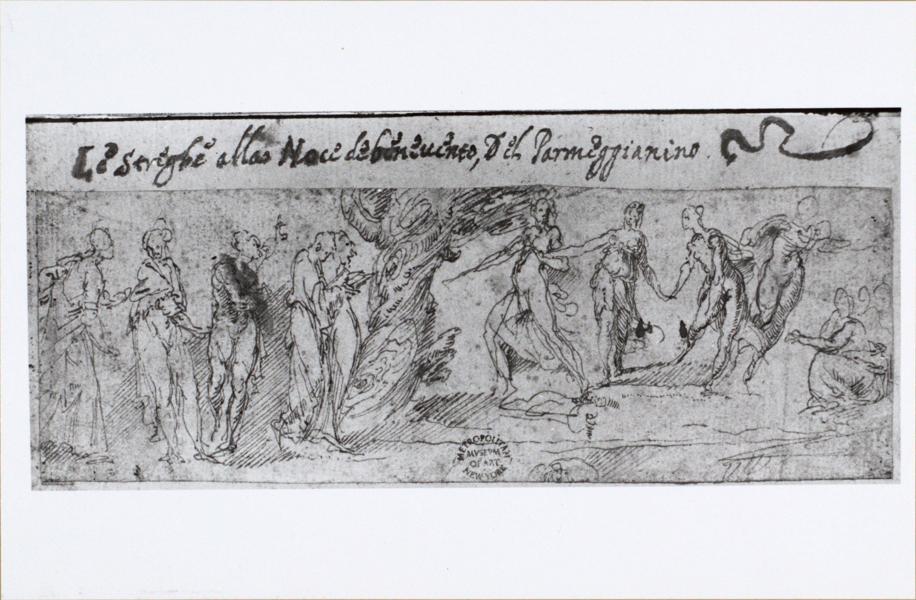 Le Streghe alla Noce de benevento, Del Parmeggianino.
METROPOLITAN
MVSEVM
OF ART
NEW YORK